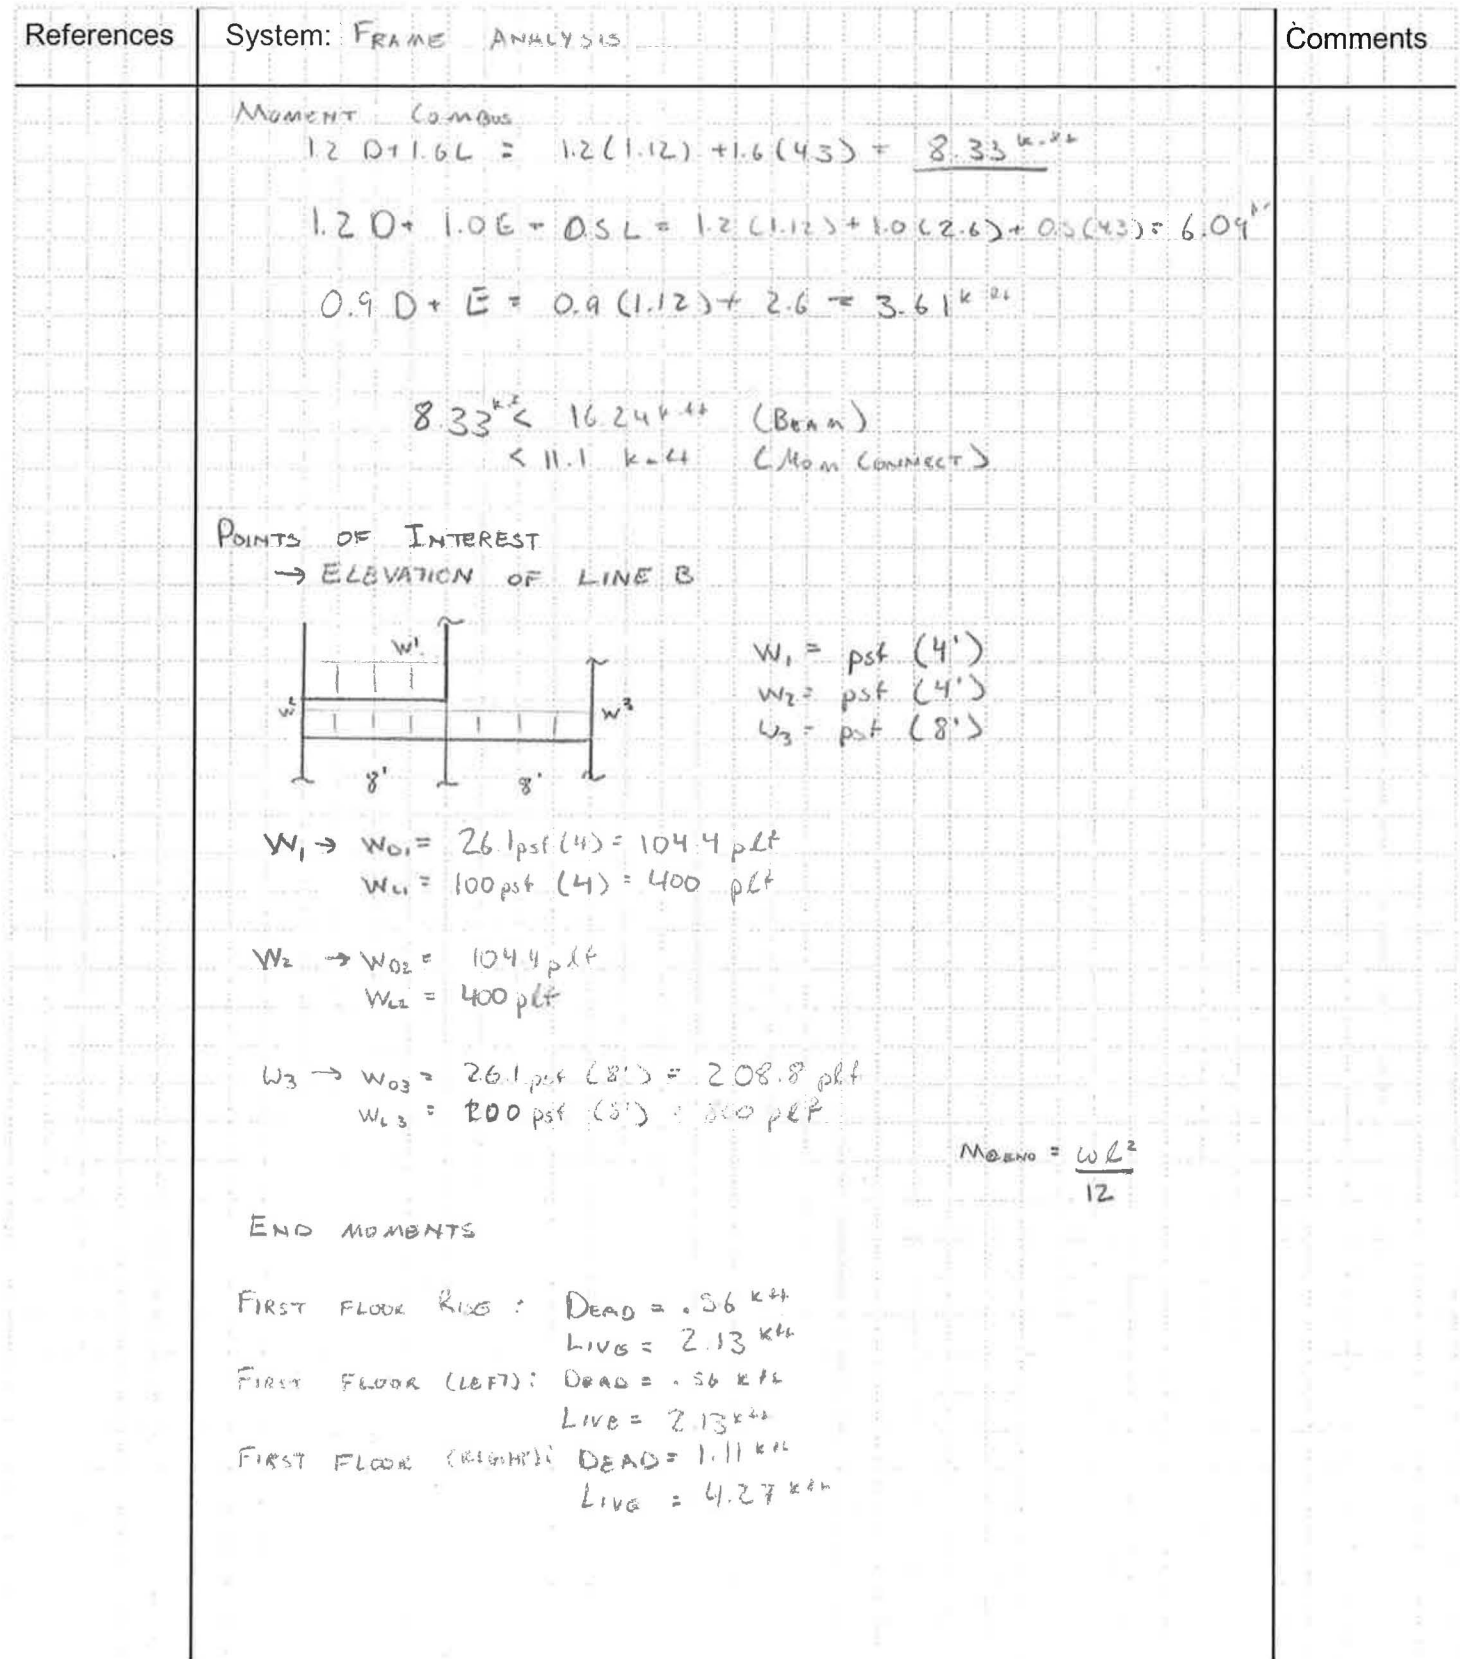 References
System: FRAME ANALYSIS
Comments
MOMENT COMBOS
1.2 D+1.6L = 1.2(1.12) +1.6(4.3) = 8.33 k-ft
1.2 D+ 1.0E + 0.5L = 1.2(1.12)+1.0(2.6)+0.5(4.3)= 6.09
0.9 D+ E = 0.9(1.12)+ 2.6 = 3.61 k-ft
8.33 < 16.24 k-ft (BEAM)
< 11.1 k-ft (MOM CONNECT)
POINTS OF INTEREST
→ ELEVATION OF LINE B
W1
W2
W3
8'
8'
W1 = psf (4')
W2 = psf (4')
W3 = psf (8')
W1 → WD1 = 26.1psf(4) = 104.4 plf
WL1 = 100psf (4) = 400 plf
W2 → WD2 = 104.4plf
WL2 = 400plf
W3 → WD3 = 26.1psf (8') = 208.8 plf
WL3 = psf (8') = 800 plf
M@END = wl²/12
END MOMENTS
FIRST FLOOR RISE : DEAD = .56 kft
LIVE = 2.13 kft
FIRST FLOOR (LEFT): DEAD = .56 kft
LIVE = 2.13 kft
FIRST FLOOR (RIGHT): DEAD = 1.11 kft
LIVE = 4.27 kft